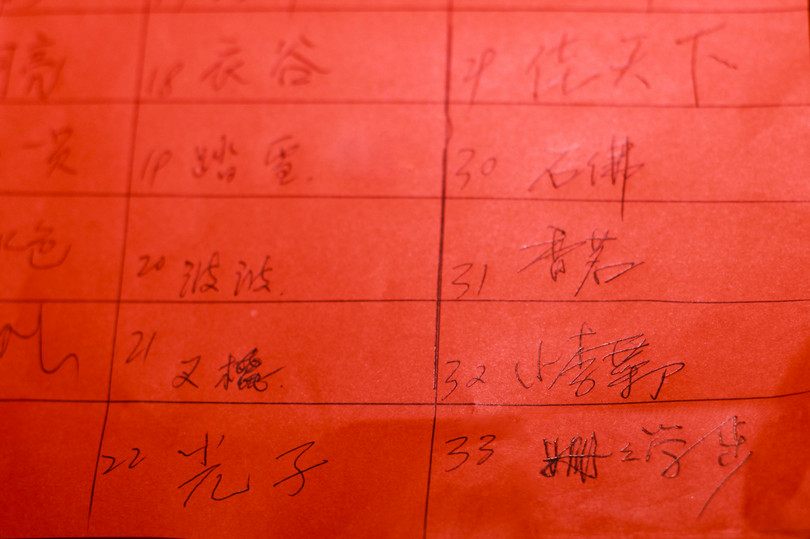 亮 18 衣谷 29 佳天下
一贝 19 踏雪. 30 石佛
色 20 波波. 31 香茗
21 又 32 小李
22 光子 33 姗之学步